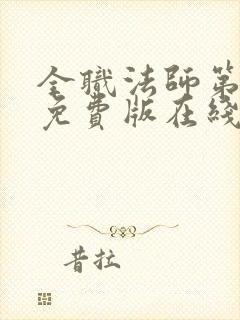 全職法師第
免費版在綫
昔拉